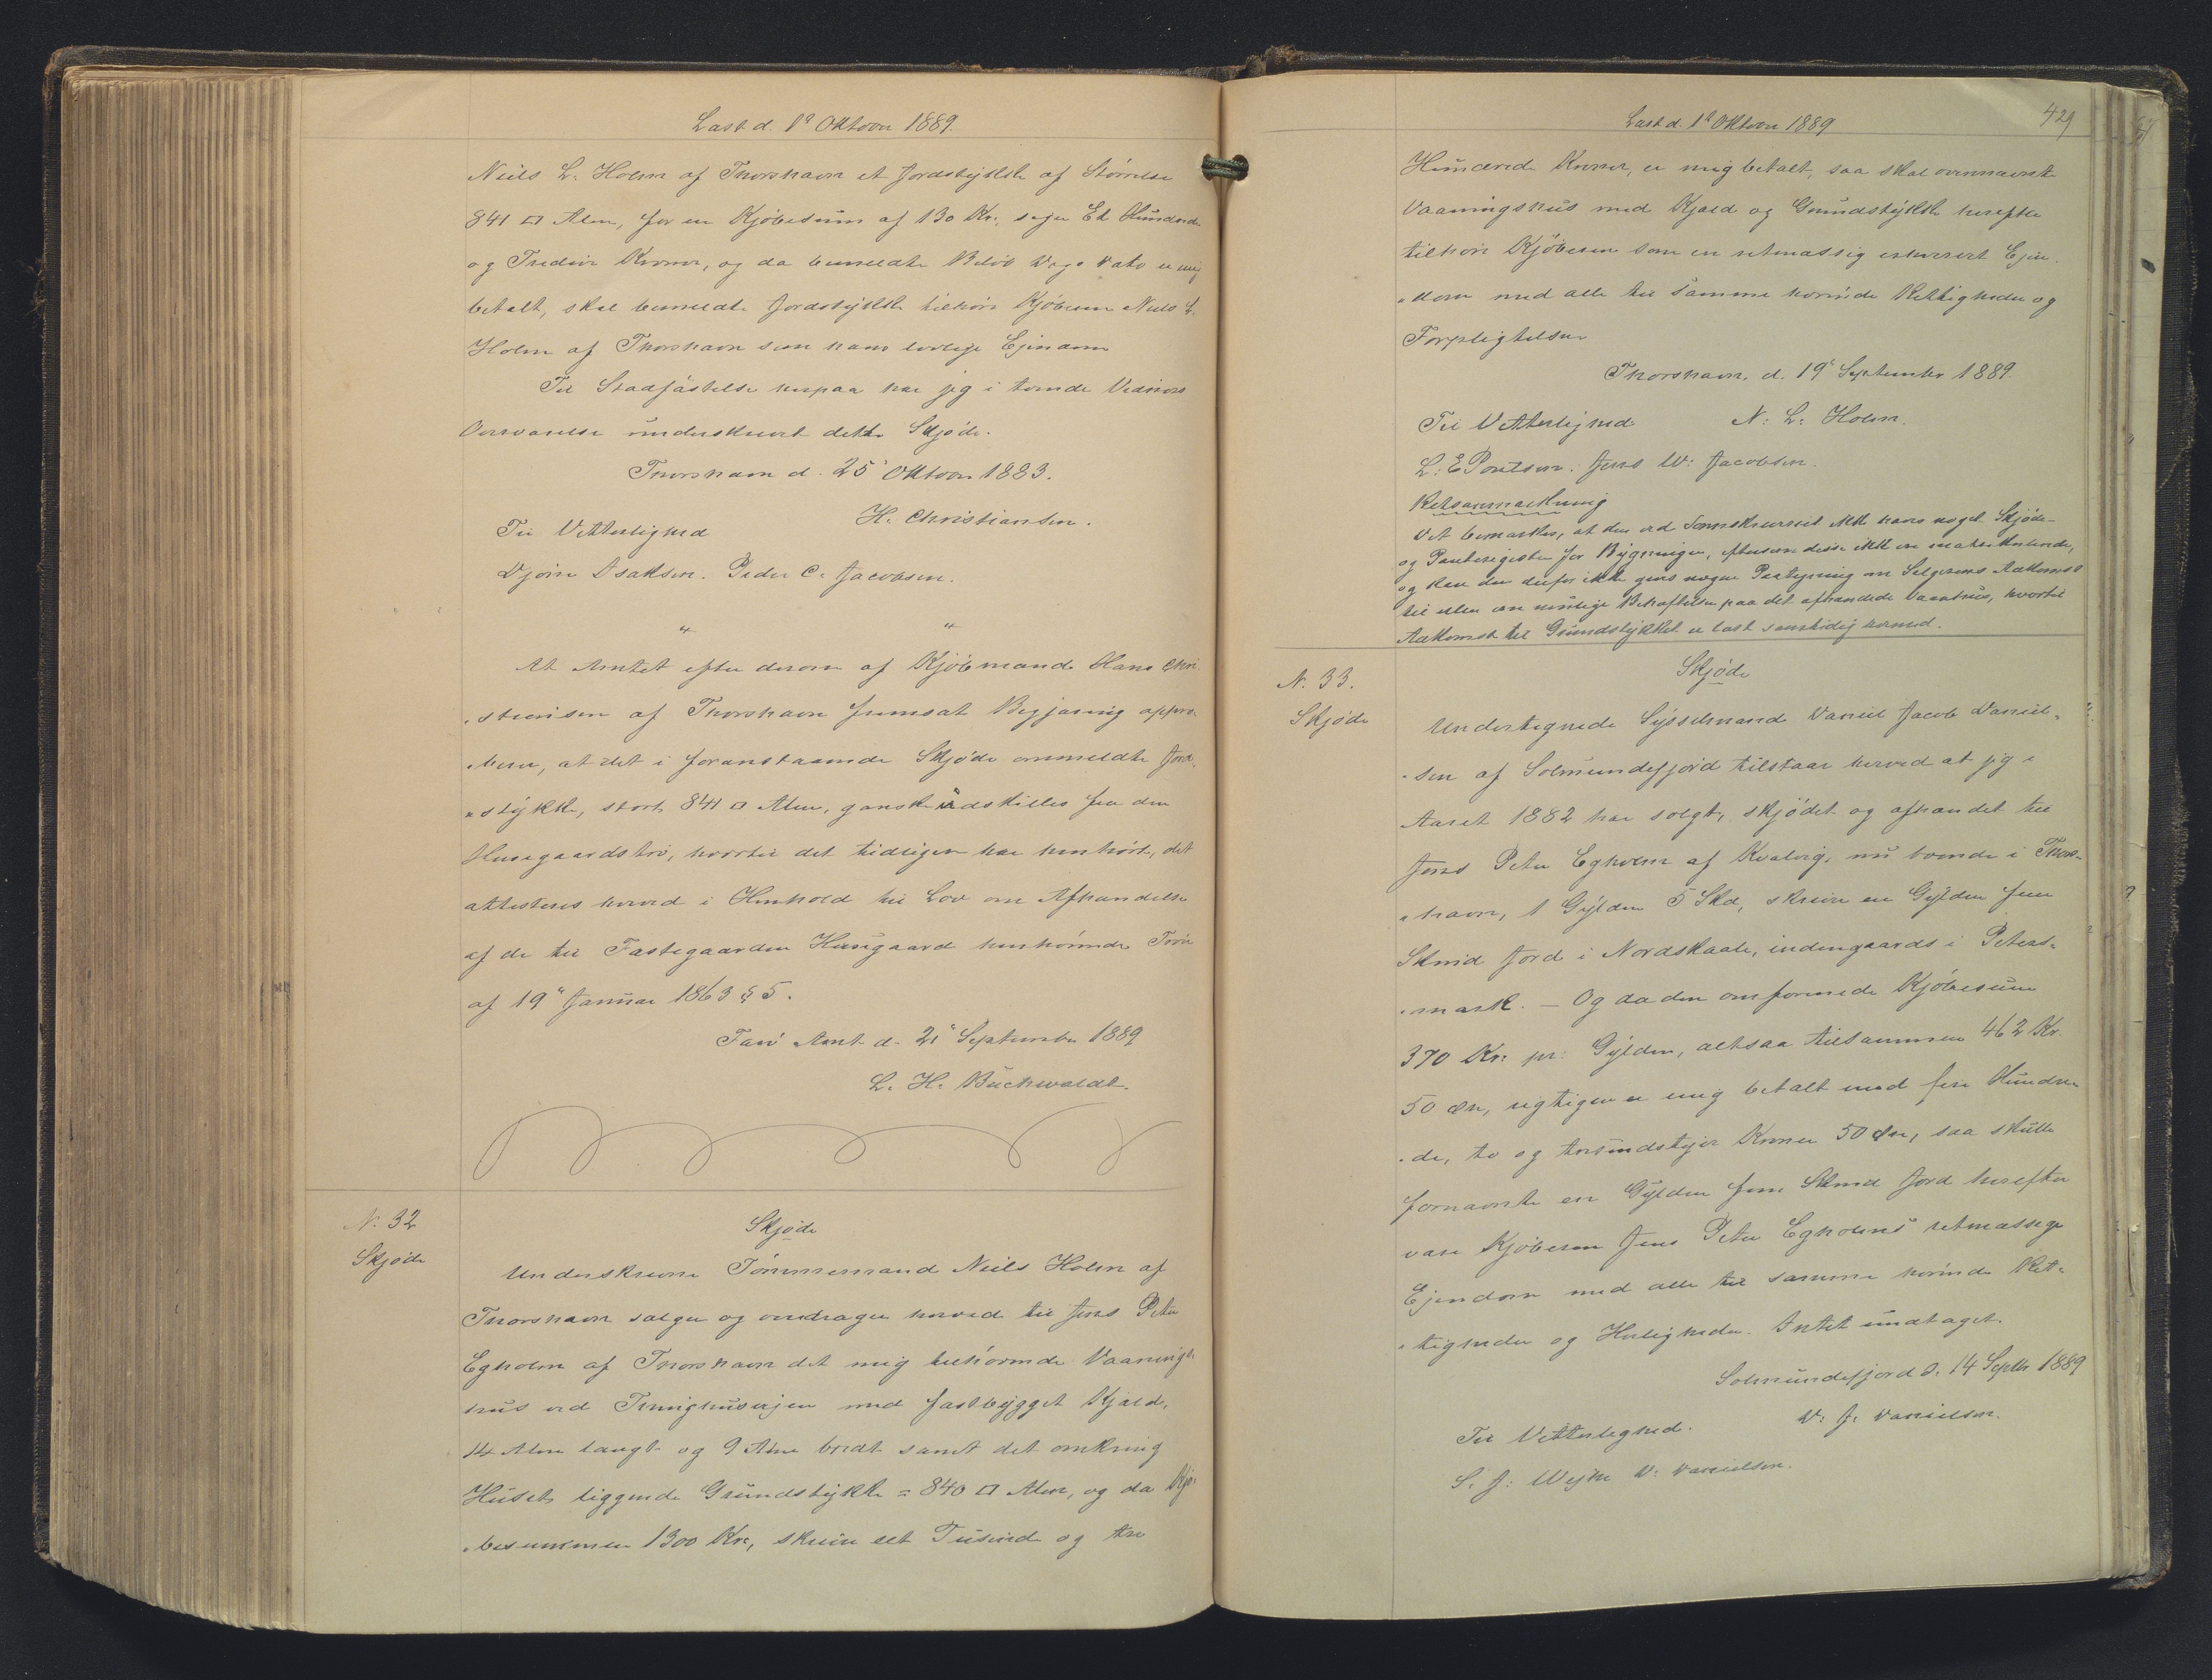 Læst d. 1ª Oktober 1889.
Niels L. Holm af Thorshavn et Jordstykke af Størrelse
841 □ Alen, for en Kjöbesum af 130 Kr., siger Et Hundrede
og Tredive Kroner, og da bemeldte Beløb Dags Dato er mig
betalt, skal bemeldte Jordstykke tilhøre Kjöberen Niels L.
Holm af Thorshavn som hans lovlige Ejendom
Til Stadfæstelse herpaa har jeg i tvende Vidners
Overværelse underskrevet dette Skjøde.
Thorshavn d. 25' Oktober 1883.
H. Christiansen.
Til Vitterlighed
Djóni Isaksen. Peder C. Jacobsen.
" "
At Amtet efter derom af Kjöbmand Hans Chri-
-stiansen af Thorshavn fremsat Begjæring appro-
-berer, at det i foranstaaende Skjøde ommeldte Jord-
-stykke, stort 841 □ Alen, ganske udskilles fra den
Husegaardstrø, hvortil det tidligere har henhørt, det
attesteres herved i Henhold til Lov om Afhændelse
af de til Fæstegaarden Husegaard henhørende Trøer
af 19" Januar 1863 § 5.
Færø Amt d. 21" September 1889
L. H. Buchwaldt.
N. 32
Skjøde
Skjøde
Underskrevne Tømmermand Niels Holm af
Thorshavn sælger og overdrager herved til Jens Peter
Egholm af Thorshavn det mig tilhørende Vaanings-
hus ved Thinghusvejen med fastbygget Kjæld,
14 Alen langt og 9 Alen bredt samt det omkring
Huset liggende Grundstykke = 840 □ Alen, og da Kjø-
-besummen 1300 Kr., skriver eet Tusinde og tre
Læst d. 1ª Oktober 1889
429
Hundrede Kroner, er mig betalt, saa skal ovennævnte
Vaaningshus med Kjæld og Grundstykke herefter
tilhøre Kjöberen som en retmæssig erhvervet Ejen-
-dom med alle til samme hørende Rettigheder og
Forpligtelser
Thorshavn, d. 19' September 1889.
Til Vitterlighed N. L. Holm.
L. E Poulsen. Jens W. Jacobsen.
Retsanmærkning
Det bemærkes, at der ved Sorenskriveriet ikke haves noget Skjøde-
og Panteregister for Bygninger, eftersom disse ikke ere matrikulerede,
og kan der derfor ikke gives nogen Paategning om Sælgerens Adkomst
til eller om mulige Behæftelser paa det afhændede Vaanhus, hvortil
Adkomst til Grundstykket er læst samtidig hermed.
N. 33.
Skjøde
Skjøde
Undertegnede Sysselmand Daniel Jacob Daniel-
-sen af Solmundefjord tilstaar herved at jeg i
Aaret 1882 har solgt, skjødet og afhændet til
Jens Peter Egholm af Kvalvig, nu boende i Thors-
-havn, 1 Gylden 5 Skd, skriver en Gylden fem
Skind Jord i Nordskaale, indengaards i Peters-
-mark. — Og da den omforenede Kjöbesum
370 Kr. pr. Gylden, altsaa tilsammen 462 Kr.
50 Øre, rigtigen er mig betalt med fire Hundre-
-de, to og tresindstyve Kroner 50 Øre, saa skulle
fornævnte en Gylden fem Skind Jord herefter
være Kjöberen Jens Peter Egholms retmæssige
Ejendom med alle til samme hørende Ret-
-tigheder og Herligheder. Intet undtaget.
Solmundefjord d. 14 Septbr 1889
D. J. Danielsen.
Til Vitterlighed.
S. J. Wejhe D. Danielsen.